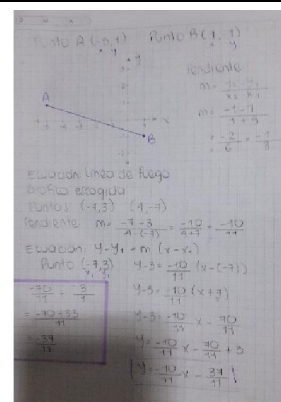 Punto A (-5,1) Punto B (1,-1)
x y x y
Pendiente
m = y₂-y₁ / x₂-x₁
m = -1-1 / 1+5
= -2/6 = -1/3
A
B
Ecuación: Linea de Fuego
Grafico escogida
Puntos (-7,3) (4,-7)
Pendiente m= -7-3 / 4-(-7) = -10 / 4+7 = -10/11
Ecuación: y-y₁ = m (x-x₁)
Punto (-7,3)
x₁ y₁
y-3 = -10/11 (x-(-7))
y-3 = -10/11 (x+7)
y-3 = -10/11 x - 70/11
y = -10/11 x - 70/11 + 3
y = -10/11 x - 37/11
-70/11 + 3/1
= -70+33 / 11
= -37/11